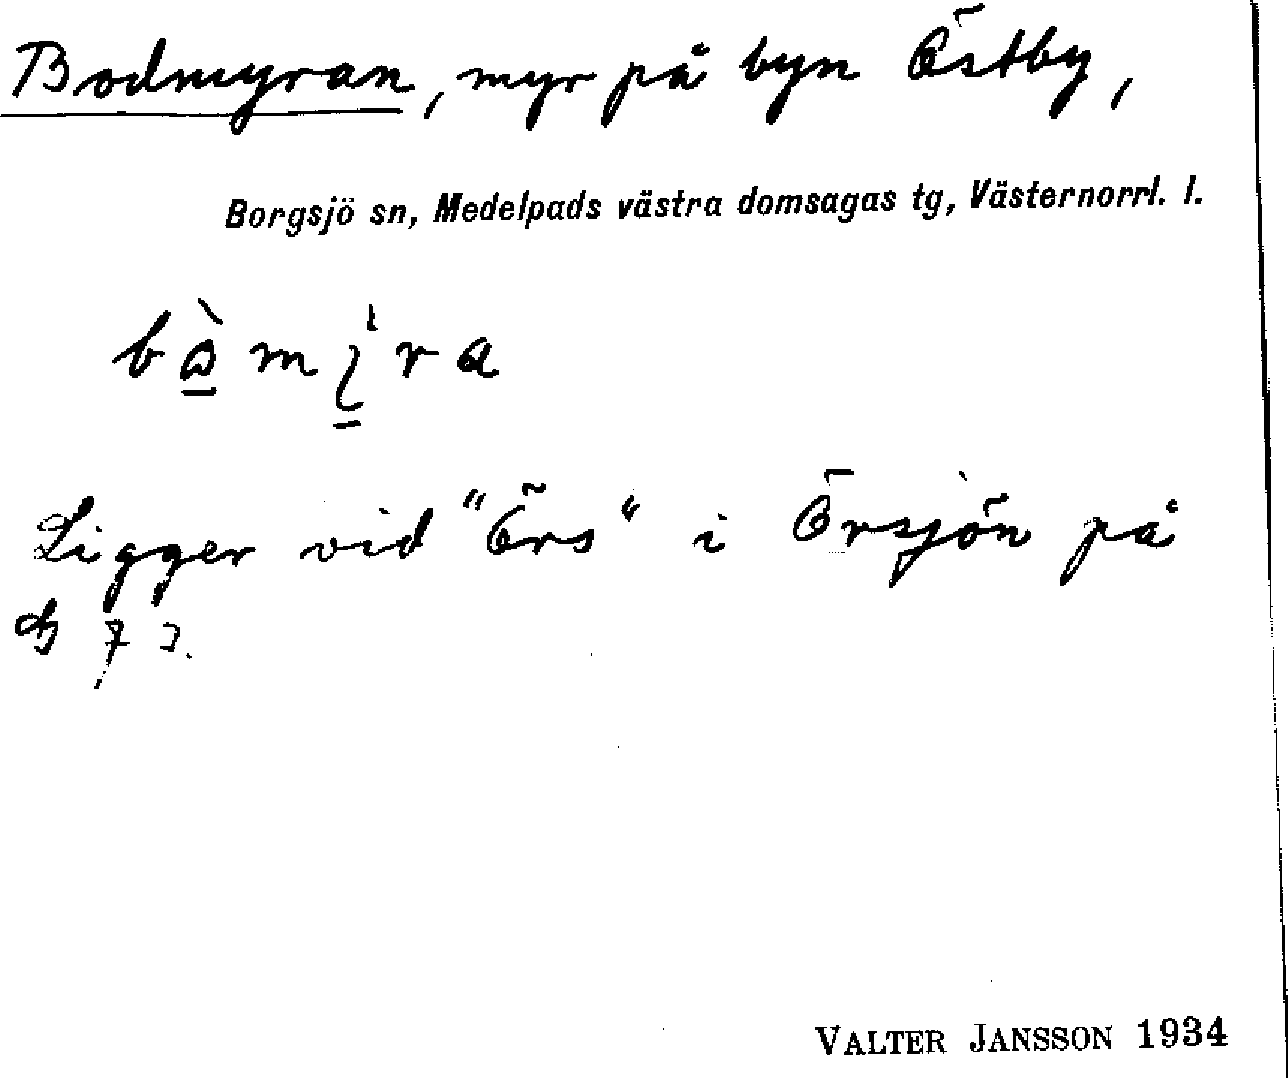 Bodmyran, myr på byn Östby,
Borgsjö sn, Medelpads västra domsagas tg, Västernorrl. l.
Ligger vid "Örs" i Örsjön på
VALTER JANSSON 1934